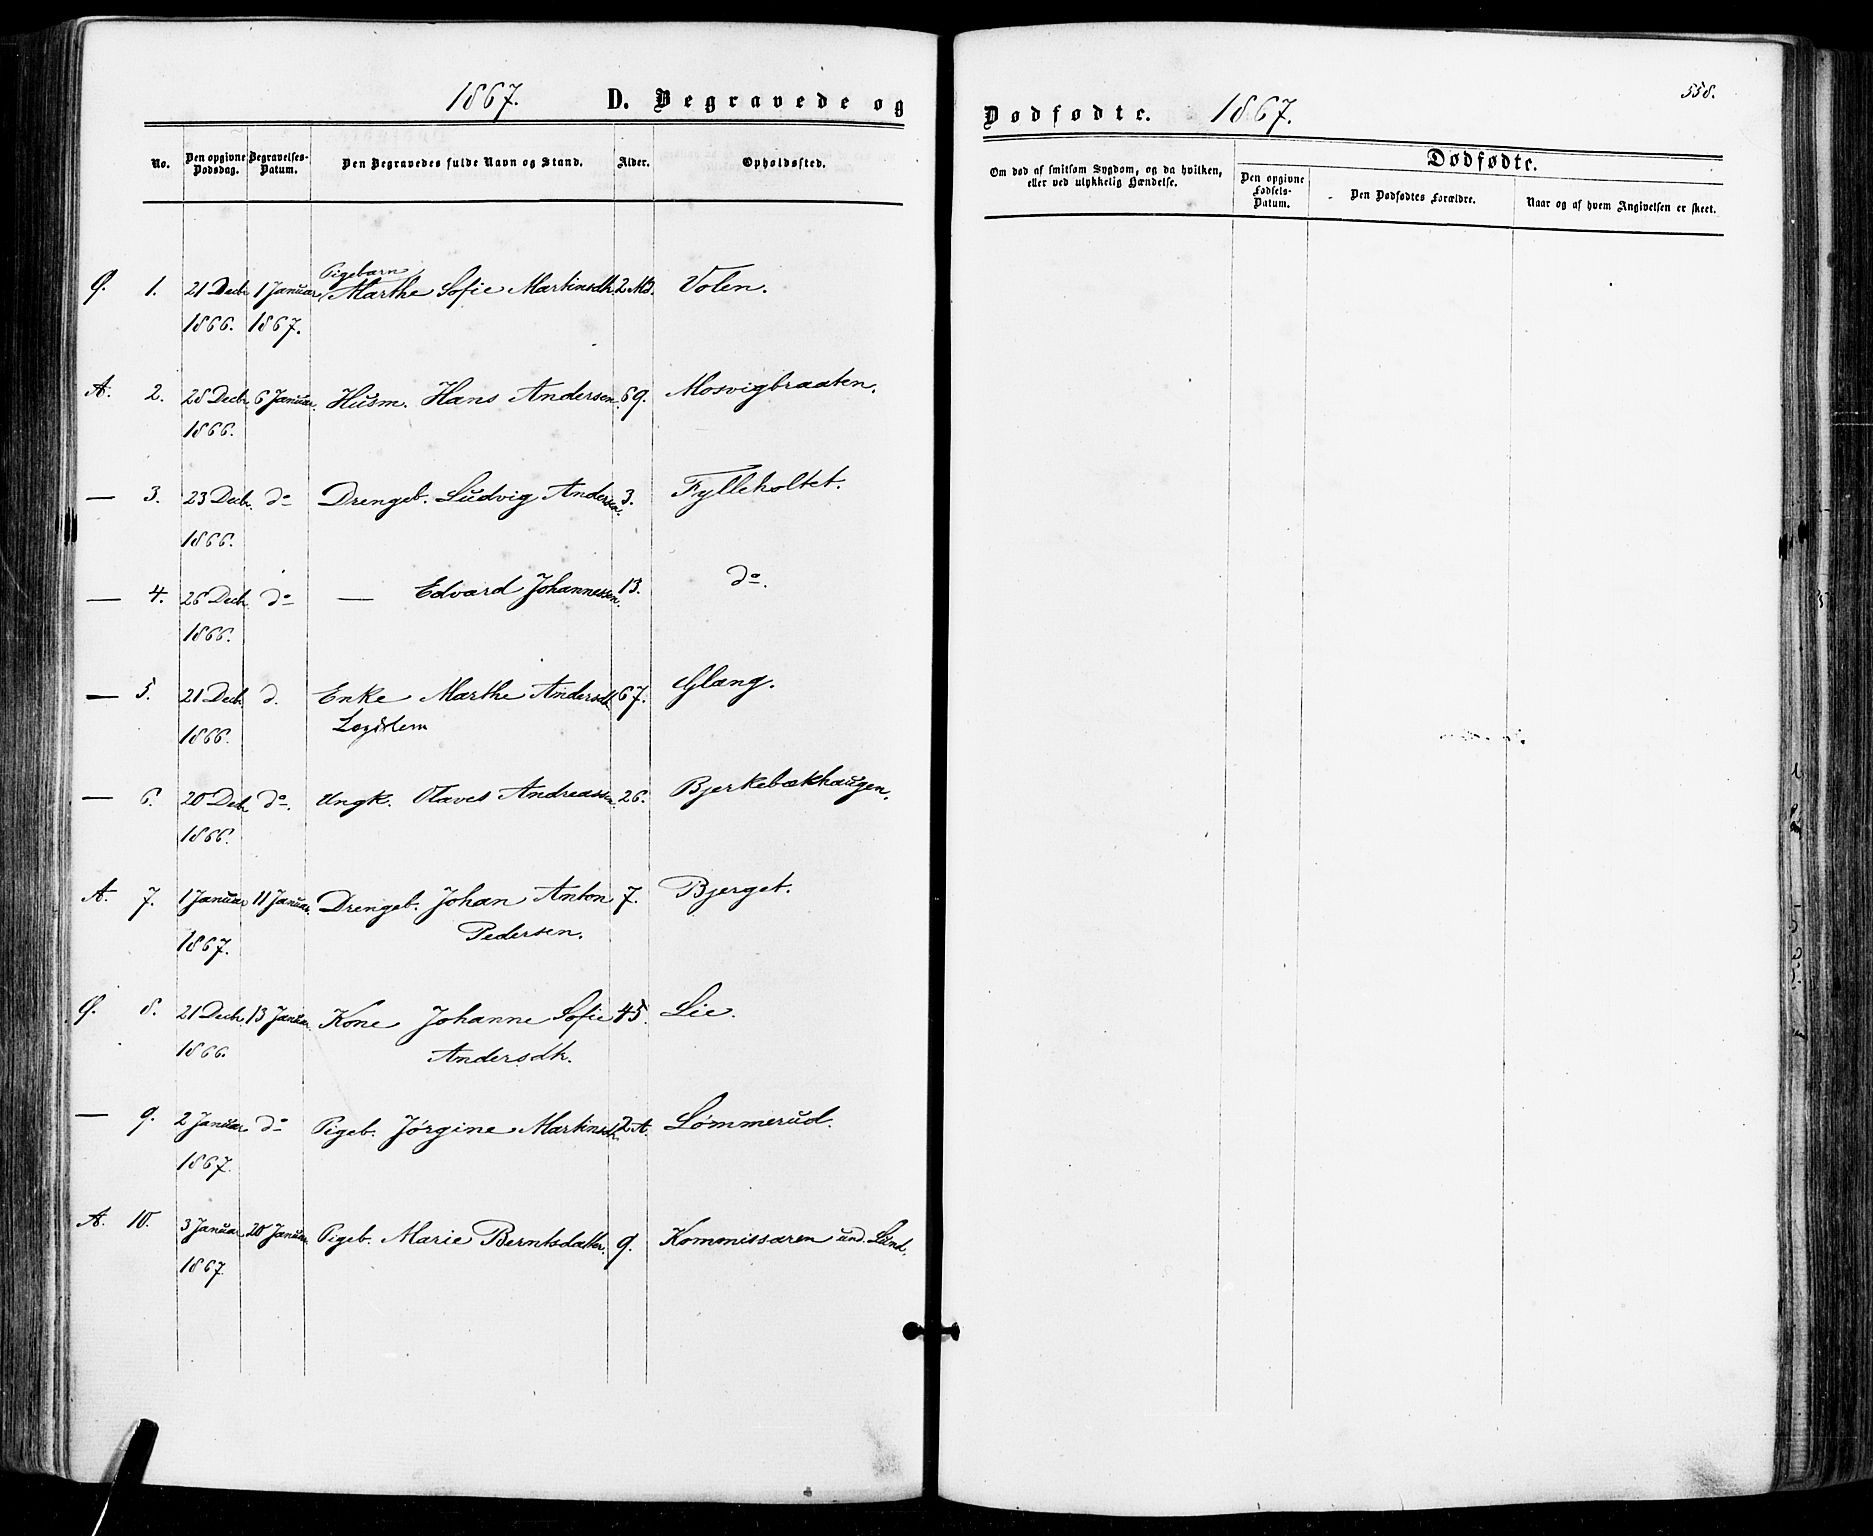 1867. D. Begravede og
No. Den opgivne Dødsdag. Begravelses-Datum. Den Begravedes fulde Navn og Stand. Alder. Opholdssted.
Pigebarn
Ø. 1. 21 Decbr 1 Januar Marthe Sofie Martinsdt. 2 Md. Volen.
1866. 1867.
A. 2. 28 Decbr 6 Januar. Husm. Hans Andersen. 69. Mosvigbraaten.
1866.
— 3. 23 Decbr. do Drengeb. Ludvig Andersen. 3. Fylleholtet.
1866.
— 4. 26 Decbr. do — Edvard Johannessen. 13. do.
1866.
— 5. 21 Decbr. d. Enke Marthe Andersdt. 67. Glæng.
1866. Lægdslem
— 6. 20 Decbr do. Ungk. Olaves Andreassen. 26. Bjerkebækhaugen.
1866.
A. 7. 1 Januar 11 Januar. Drengeb. Johan Anton 7. Bjerget.
1867. Pedersen.
Ø. 8. 21 Decbr. 13 Januar. Kone Johanne Sofie 45. Lie.
1866. Andersdtr.
— 9. 2 Januar do Pigeb. Jørgine Martinsdt. 2 A. Lømmerud.
1867.
A. 10. 3 Januar 20 Januar. Pigeb. Marie Berntsdatter. 9. Kommissaren und. Lund.
1867.
558.
Dødfødte. 1867.
Om død af smitsom Sygdom, og da hvilken,
eller ved ulykkelig Hændelse.
Dødfødte.
Den opgivne Fødsels-Datum. Den Dødfødtes Forældre. Naar og af hvem Angivelsen er skeet.